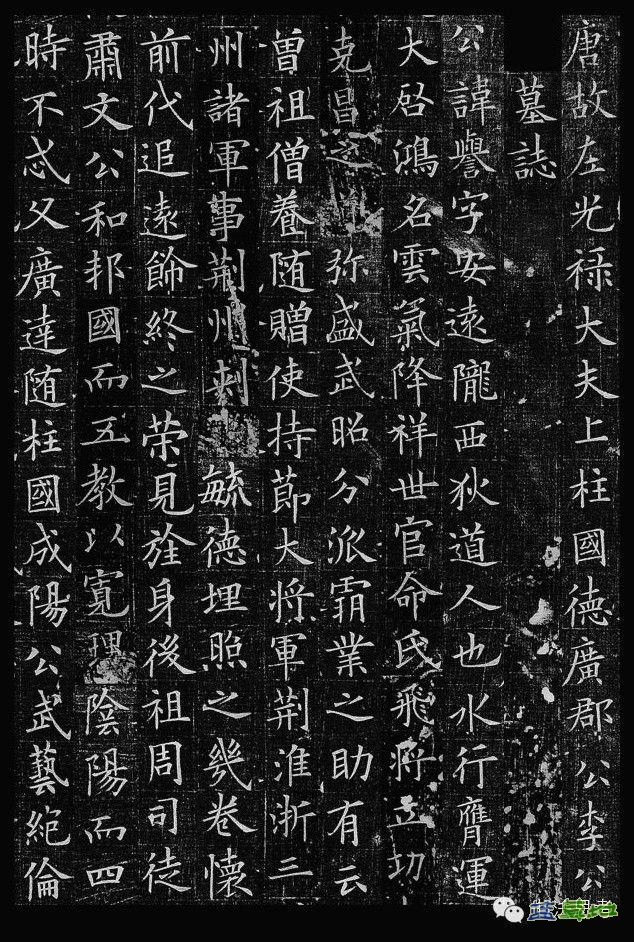 唐故左光禄大夫上柱國德廣郡公李公
墓誌
公諱譽字安遠隴西狄道人也水行膺運
大啓鴻名雲氣降祥世官命氏飛將立功
克昌之弥盛武昭分派霸業之助有云
曽祖僧養随贈使持莭大將軍荆淮浙三
州諸軍事荆州刺毓德埋照之幾卷懷
前代追遠飾終之荣見旌身後祖周司徒
肅文公和邦國而五教以寛理陰陽而四
時不忒父廣達随柱國成陽公武藝絕倫